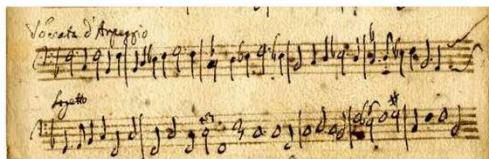 Toccata d'Arpeggio
Sogetto